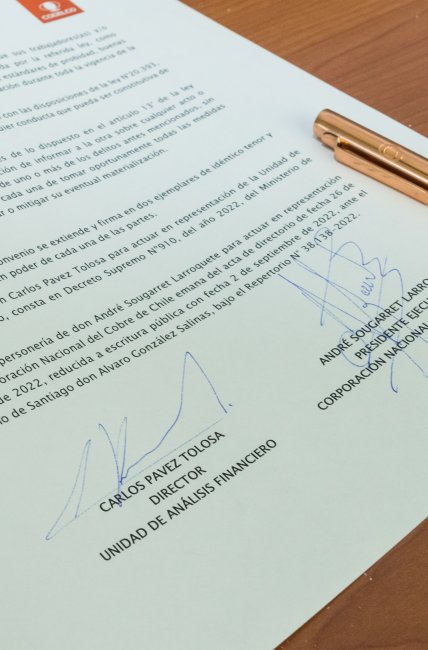 CODELCO
de sus trabajadores(as) y/o
por la referida ley, como
estándares de probidad, buenas
durante toda la vigencia de la
con las disposiciones de la ley N°20.393,
conducta que pueda ser constitutiva de
de lo dispuesto en el artículo 13° de la ley
de informar a la otra sobre cualquier acto o
de uno o más de los delitos antes mencionados, sin
cada una de tomar oportunamente todas las medidas
o mitigar su eventual materialización.
se extiende y firma en dos ejemplares de idéntico tenor y
poder de cada una de las partes.
Carlos Pavez Tolosa para actuar en representación de la Unidad de
consta en Decreto Supremo N°910, del año 2022, del Ministerio de
personería de don André Sougarret Larroquete para actuar en representación
Nacional del Cobre de Chile emana del acta de directorio de fecha 26 de
de 2022, reducida a escritura pública con fecha 2 de septiembre de 2022, ante el
de Santiago don Alvaro González Salinas, bajo el Repertorio N° 38.138-2022.
ANDRÉ SOUGARRET LARRO
PRESIDENTE EJECU
CORPORACIÓN NACIONAL
CARLOS PAVEZ TOLOSA
DIRECTOR
UNIDAD DE ANÁLISIS FINANCIERO